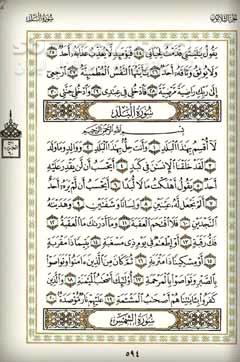 سُورَةُ البَلَدِ الجُزْءُ الثَّلَاثُونَ
يَقُولُ يَٰلَيْتَنِي قَدَّمْتُ لِحَيَاتِي ٢٤ فَيَوْمَئِذٍ لَّا يُعَذِّبُ عَذَابَهُۥٓ أَحَدٌ ٢٥
وَلَا يُوثِقُ وَثَاقَهُۥٓ أَحَدٌ ٢٦ يَٰٓأَيَّتُهَا ٱلنَّفْسُ ٱلْمُطْمَئِنَّةُ ٢٧ ٱرْجِعِيٓ
إِلَىٰ رَبِّكِ رَاضِيَةً مَّرْضِيَّةً ٢٨ فَٱدْخُلِي فِي عِبَٰدِي ٢٩ وَٱدْخُلِي جَنَّتِي ٣٠
سُورَةُ البَلَدِ
بِسْمِ ٱللَّهِ ٱلرَّحْمَٰنِ ٱلرَّحِيمِ
لَآ أُقْسِمُ بِهَٰذَا ٱلْبَلَدِ ١ وَأَنتَ حِلٌّۢ بِهَٰذَا ٱلْبَلَدِ ٢ وَوَالِدٍ وَمَا وَلَدَ ٣
لَقَدْ خَلَقْنَا ٱلْإِنسَٰنَ فِي كَبَدٍ ٤ أَيَحْسَبُ أَن لَّن يَقْدِرَ عَلَيْهِ
أَحَدٌ ٥ يَقُولُ أَهْلَكْتُ مَالًا لُّبَدًا ٦ أَيَحْسَبُ أَن لَّمْ يَرَهُۥٓ أَحَدٌ ٧
أَلَمْ نَجْعَل لَّهُۥ عَيْنَيْنِ ٨ وَلِسَانًا وَشَفَتَيْنِ ٩ وَهَدَيْنَٰهُ
ٱلنَّجْدَيْنِ ١٠ فَلَا ٱقْتَحَمَ ٱلْعَقَبَةَ ١١ وَمَآ أَدْرَىٰكَ مَا ٱلْعَقَبَةُ ١٢
فَكُّ رَقَبَةٍ ١٣ أَوْ إِطْعَٰمٌ فِي يَوْمٍ ذِي مَسْغَبَةٍ ١٤ يَتِيمًا ذَا مَقْرَبَةٍ ١٥
أَوْ مِسْكِينًا ذَا مَتْرَبَةٍ ١٦ ثُمَّ كَانَ مِنَ ٱلَّذِينَ ءَامَنُوا۟ وَتَوَاصَوْا۟
بِٱلصَّبْرِ وَتَوَاصَوْا۟ بِٱلْمَرْحَمَةِ ١٧ أُو۟لَٰٓئِكَ أَصْحَٰبُ ٱلْمَيْمَنَةِ ١٨ وَٱلَّذِينَ
كَفَرُوا۟ بِـَٔايَٰتِنَا هُمْ أَصْحَٰبُ ٱلْمَشْـَٔمَةِ ١٩ عَلَيْهِمْ نَارٌ مُّؤْصَدَةٌۢ ٢٠
سُورَةُ الشَّمْسِ
٥٩٤